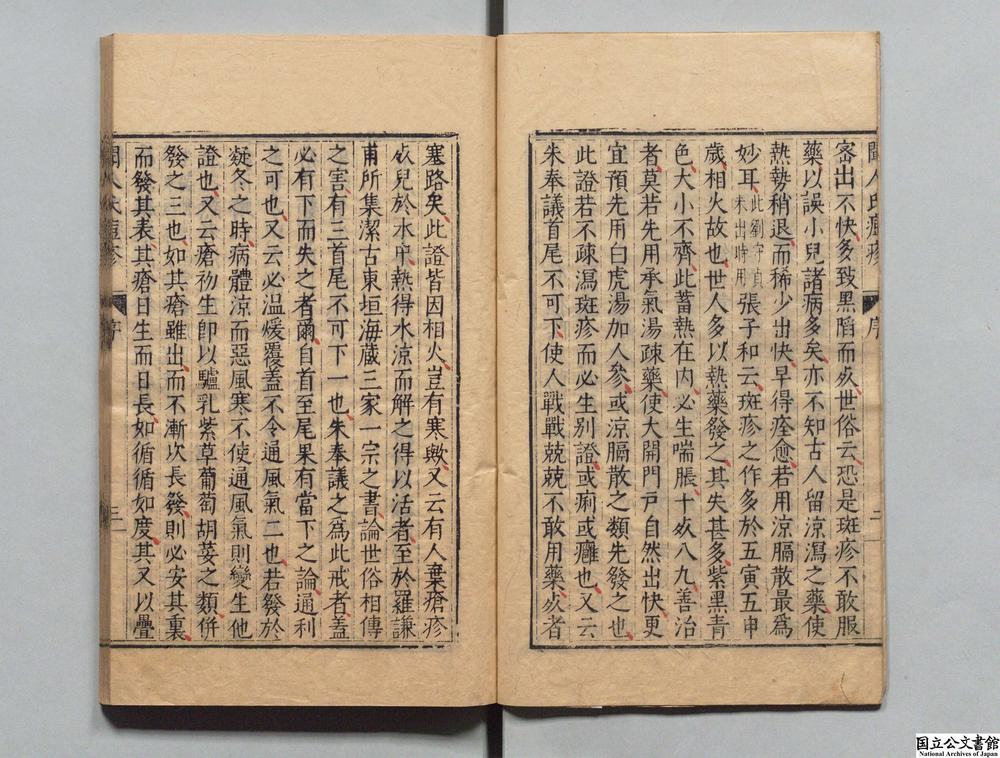 密出不快多致黑陷而死世俗云恐是斑疹不敢服
藥以誤小兒諸病多矣亦不知古人留涼瀉之藥使
熱勢稍退而稀少出快早得痊愈若用涼膈散最爲
妙耳此劉守真未出時用張子和云斑疹之作多於五寅五申
歲相火故也世人多以熱藥發之其失甚多紫黑青
色大小不齊此蓄熱在内必生喘脹十死八九善治
者莫若先用承氣湯疎藥使大開門戸自然出快更
宜預先用白虎湯加人參或涼膈散之類先發之也
此證若不疎瀉斑疹而必生别證或痢或癰也又云
朱奉議首尾不可下使人戰戰兢兢不敢用藥死者
塞路矣此證皆因相火豈有寒歟又云有人棄瘡疹
死兒於水中熱得水涼而解之得以活者至於羅謙
甫所集潔古東垣海藏三家一宗之書論世俗相傳
之害有三首尾不可下一也朱奉議之爲此戒者蓋
必有下而失之者爾自首至尾果有當下之論通利
之可也又云必温煖覆蓋不令通風氣二也若發於
凝冬之時病體涼而惡風寒不使通風氣則變生他
證也又云瘡初生卽以驢乳紫草葡萄胡荽之類併
發之三也如其瘡雖出而不漸次長發則必安其裏
而發其表其瘡日生而日長如循循如度其又以疊
序
二
序
三
国立公文書館
National Archives of Japan